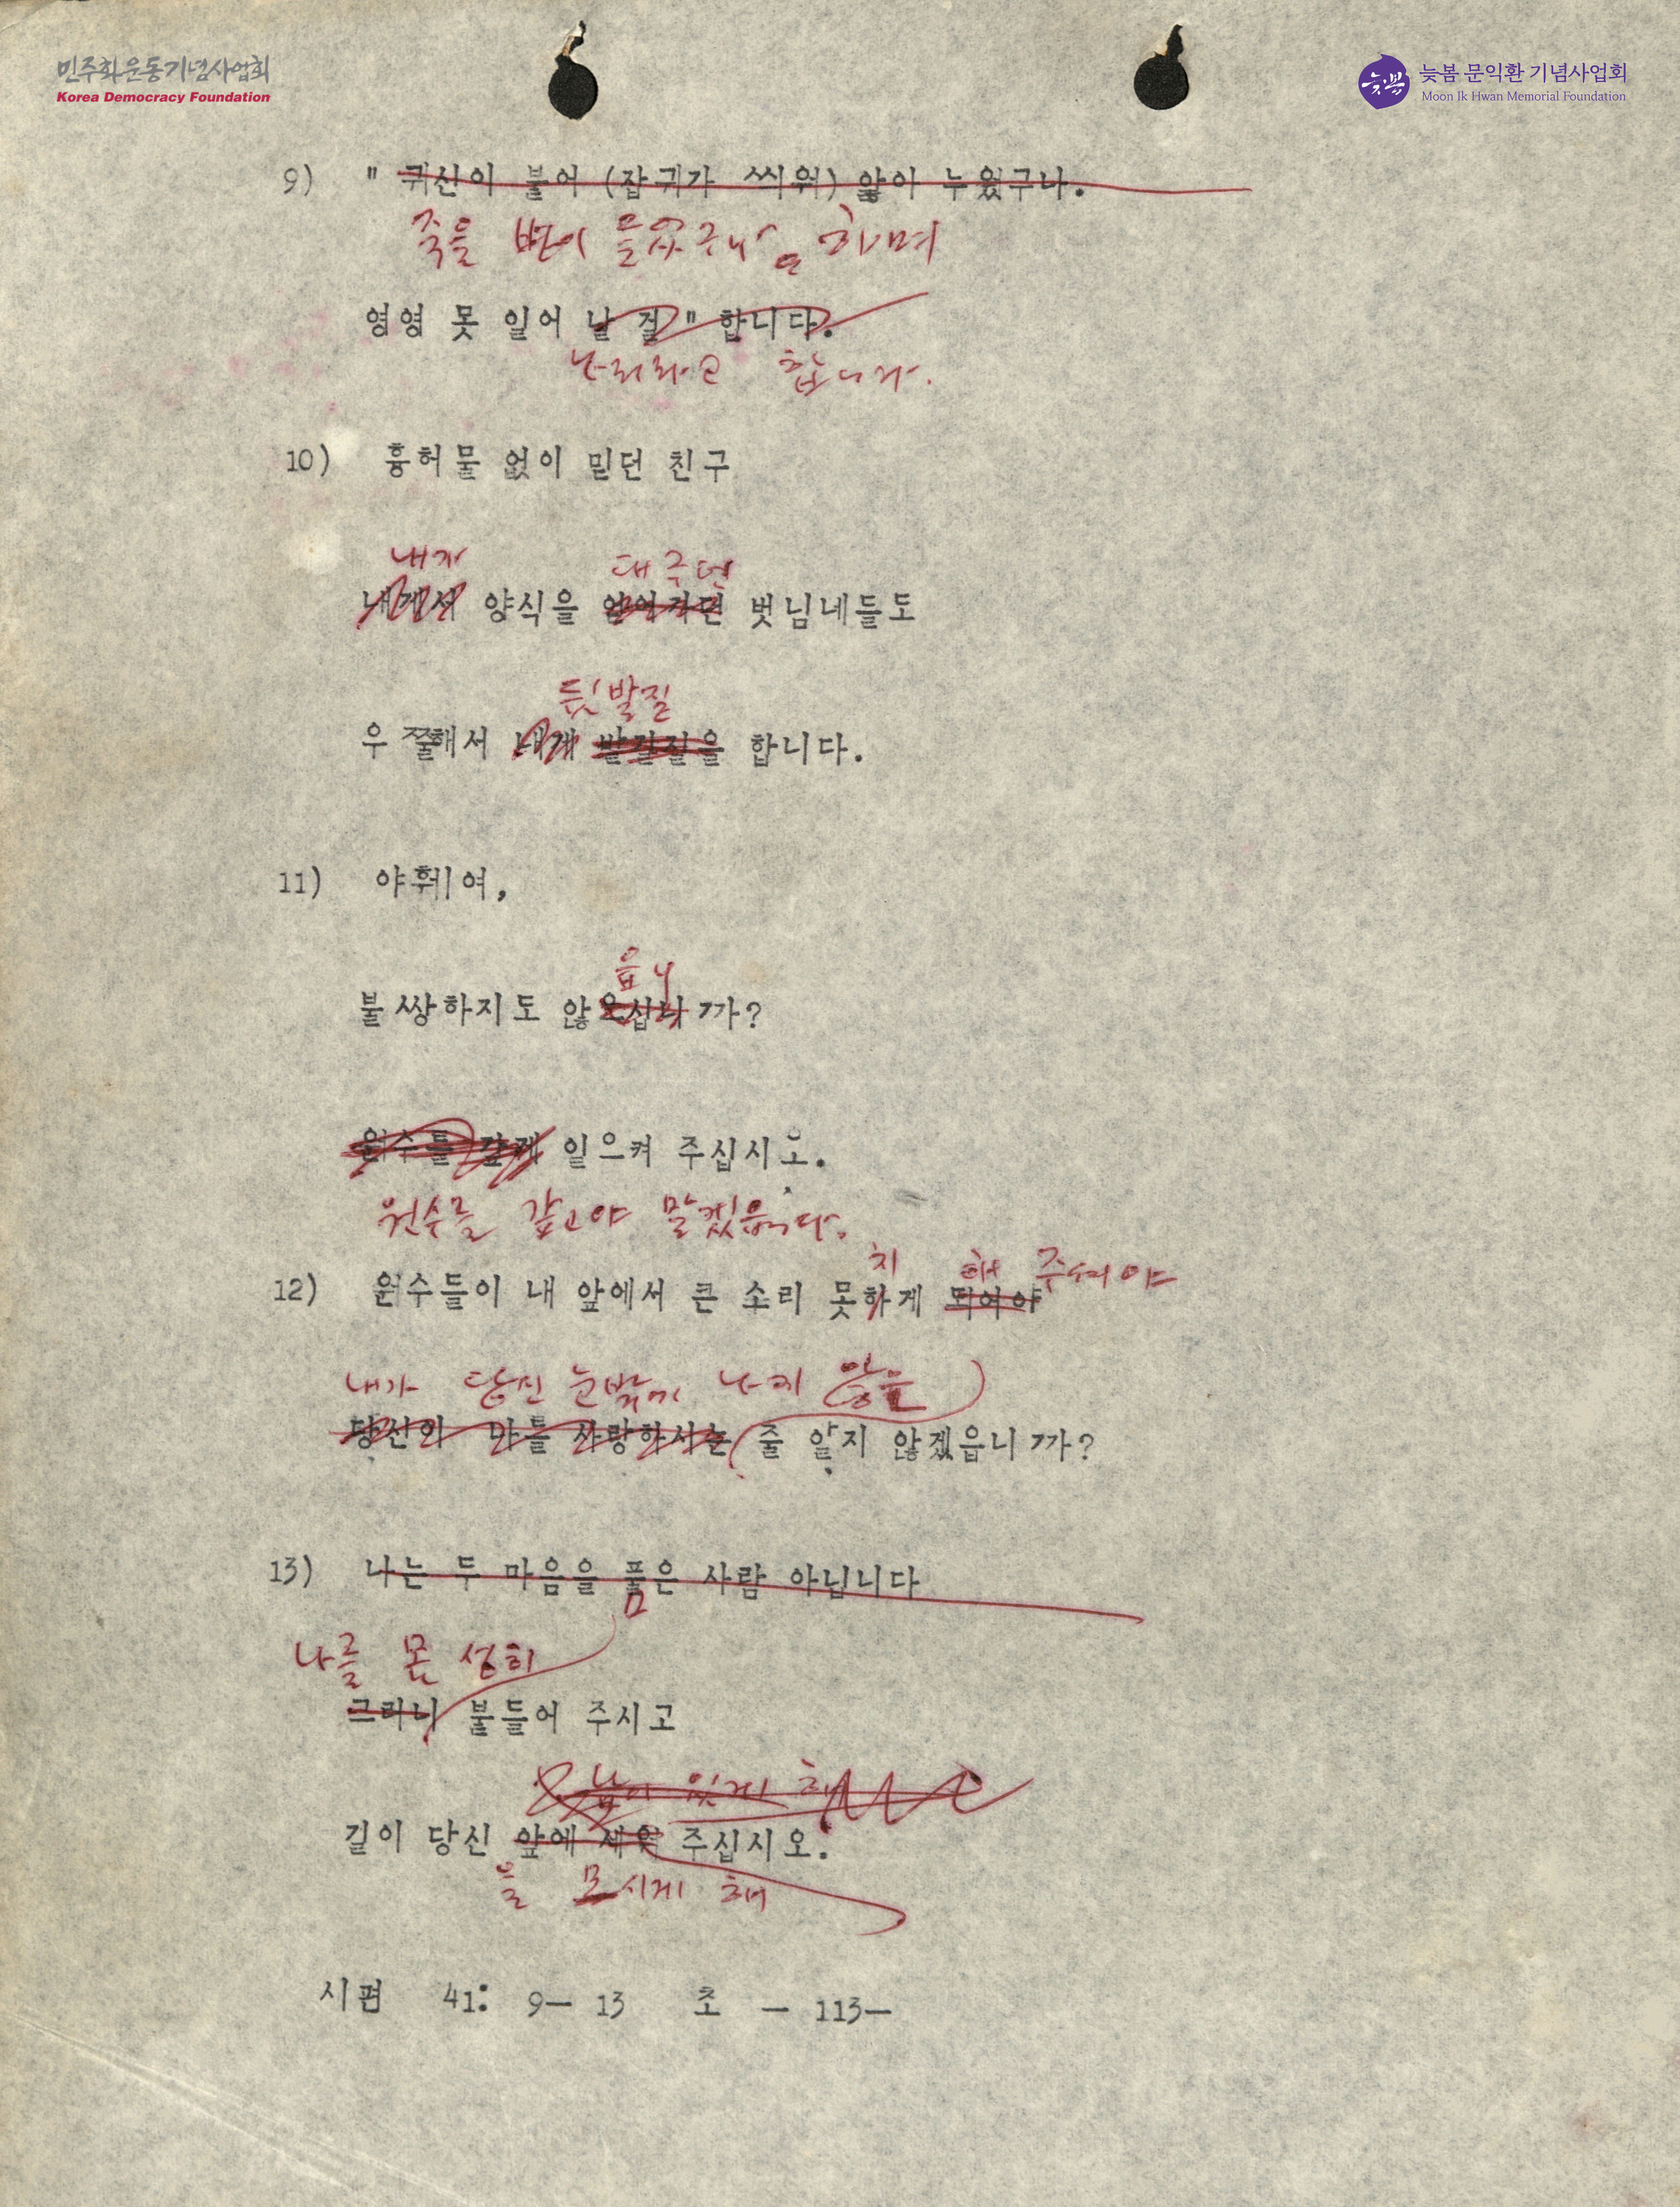 민주화운동기념사업회
Korea Democracy Foundation
늦봄
늦봄 문익환 기념사업회
Moon Ik Hwan Memorial Foundation
9) " 귀신이 붙어 (잡귀가 씌워) 앓아 누웠구나.
죽을 병이 들었구나" 하며
영영 못 일어 날 걸 " 합니다.
나리라고 합니다.
10) 흉허물 없이 믿던 친구
내가 대주던
내게서 양식을 얻어가던 벗님네들도
뒷발질
우쭐해서 내게 발길질을 합니다.
11) 야훼여,
읍니
불쌍하지도 않으십니까?
원수를 갚게 일으켜 주십시오.
원수를 갚고야 말겠읍니다.
치 해 주셔야
12) 원수들이 내 앞에서 큰 소리 못하게 되어야
내가 당신 눈밖에 나지 않은
당신이 나를 사랑하시는 줄 알지 않겠읍니까?
13) 나는 두 마음을 품은 사람 아닙니다
나를 몸 성히
그러니 붙들어 주시고
있게
길이 당신 앞에 세워 주십시오.
을 모시게 해
시편 41: 9— 13 초 — 113—